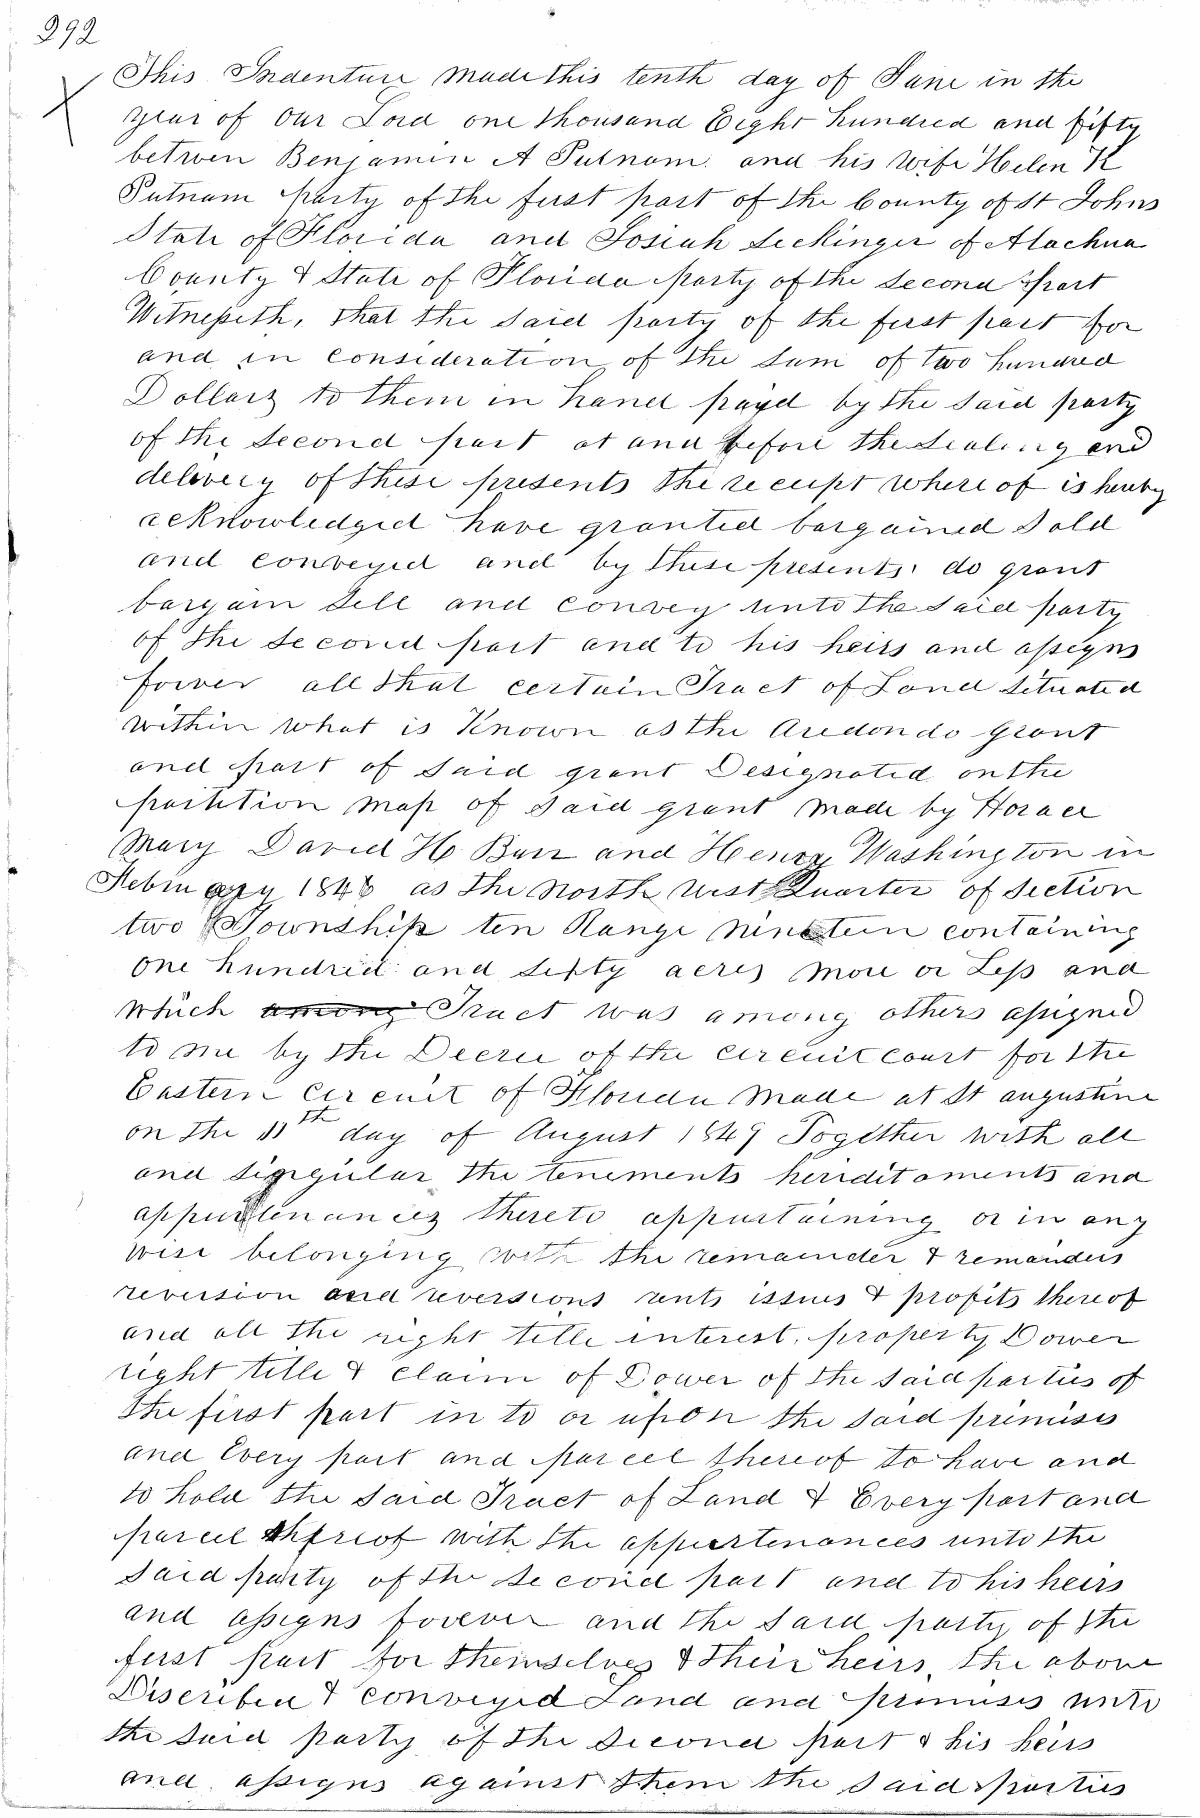 292
This Indenture made this tenth day of June in the
year of Our Lord one thousand Eight hundred and fifty
between Benjamin A Putnam and his wife Helen K
Putnam party of the first part of the County of St Johns
State of Florida and Josiah Seckinger of Alachua
County & State of Florida party of the second part
Witnesseth, that the said party of the first part for
and in consideration of the sum of two hundred
Dollars to them in hand payd by the said party
of the second part at and before the sealing and
delivery of these presents the receipt whereof is hereby
acknowledged have granted bargained sold
and conveyed and by these presents do grant
bargain sell and convey unto the said party
of the second part and to his heirs and assigns
forever all that certain Tract of Land situated
within what is Known as the Aredondo grant
and part of said grant Designated on the
partition map of said grant made by Horace
Mary David H Burr and Henry Washington in
February 1846 as the North West Quarter of Section
two Township ten Range nineteen containing
one hundred and sixty acres more or Less and
which among Tract was among others assigned
to me by the Decree of the circuit court for the
Eastern Circuit of Florida made at St augustine
on the 11th day of August 1849 Together with all
and singular the tenements heriditaments and
appurtenances thereto appurtaining or in any
wise belonging with the remainder & remanders
reversion and reversions rents issues & profits thereof
and all the right title interest property Dower
right title & claim of Dower of the said parties of
the first part in to or upon the said premises
and Every part and parcel thereof to have and
to hold the said Tract of Land & Every part and
parcel thereof with the appurtenances unto the
said party of the second part and to his heirs
and assigns forever and the said party of the
first part for themselves & their heirs the above
Discribed & conveyed Land and premises unto
the said party of the second part & his heirs
and assigns against them the said parties